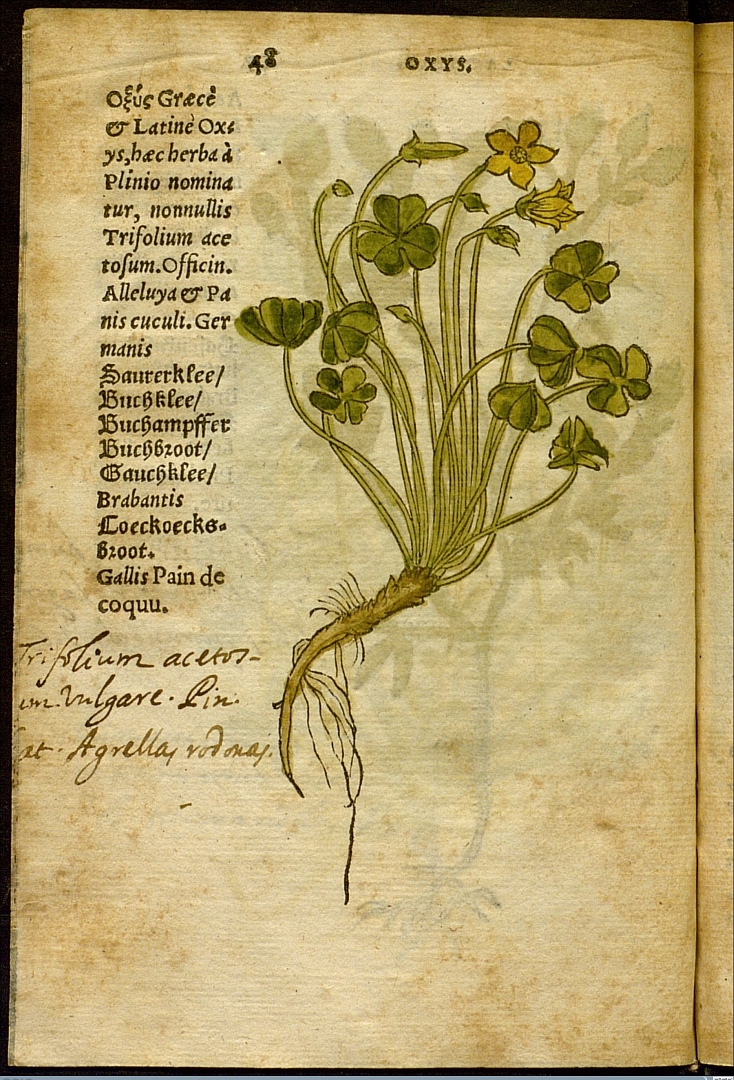 48
OXYS.
Οξύς Græcè
& Latinè Ox⸗
ys, hæc herba à
Plinio nomina
tur, nonnullis
Trifolium ace
tosum. Officin.
Alleluya & Pa
nis cuculi. Ger
manis
Saurerklee/
Buchklee/
Buchampffer
Buchbroot/
Gauchklee/
Brabantis
Coeckoecks⸗
broot.
Gallis Pain de
coquu.
Trifolium acetos-
um vulgare. Pin.
Cat. Agrellas rodonas.